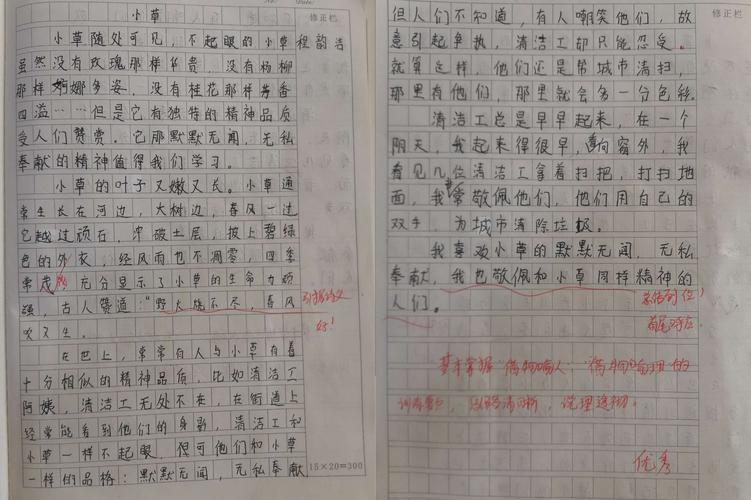 小草
小草随处可见，不起眼的小草程韵洁
虽然没有玫瑰那样华贵，没有杨柳
那样婀娜多姿，没有桂花那样芳香
四溢……但是它有独特的精神品质
受人们赞赏。它那默默无闻，无私
奉献的精神值得我们学习。
小草的叶子又嫩又长。小草通
常生长在河边，大树边，春风一过
它越过顽石，冲破土层，披上碧绿
色的外衣，经风雨也不凋零，四季
常茂盛充分显示了小草的生命力顽
强，古人赞道：“野火烧不尽，春风
吹又生。
引据诗文
好！
在世上，常常有人与小草有着
十分相似的精神品质，比如清洁工
阿姨，清洁工无处不在，在街道上
经常能看到他们的身影，清洁工和
小草一样不起眼，但可他们和小草
一样的品格：默默无闻，无私奉献
15×20=300
修正栏
但人们不知道，有人嘲笑他们，故
意引起争执，清洁工却只能忍受。
就算这样，他们还是帮城市清扫，
那里有他们，那里就会多一分色彩。
清洁工总是早早起来，在一个
阴天，我起来得很早，向窗外，我
看见几位清洁工拿着扫把，打扫地
面，我常敬佩他们，他们用自己的
双手，为城市清除垃圾。
我喜欢小草的默默无闻，无私
奉献，我也敬佩和小草同样精神的
人们。
总结到位！
首尾呼应
基本掌握“借物喻人”“借物喻理”的
思路清晰，说理透彻。
优秀
修正栏